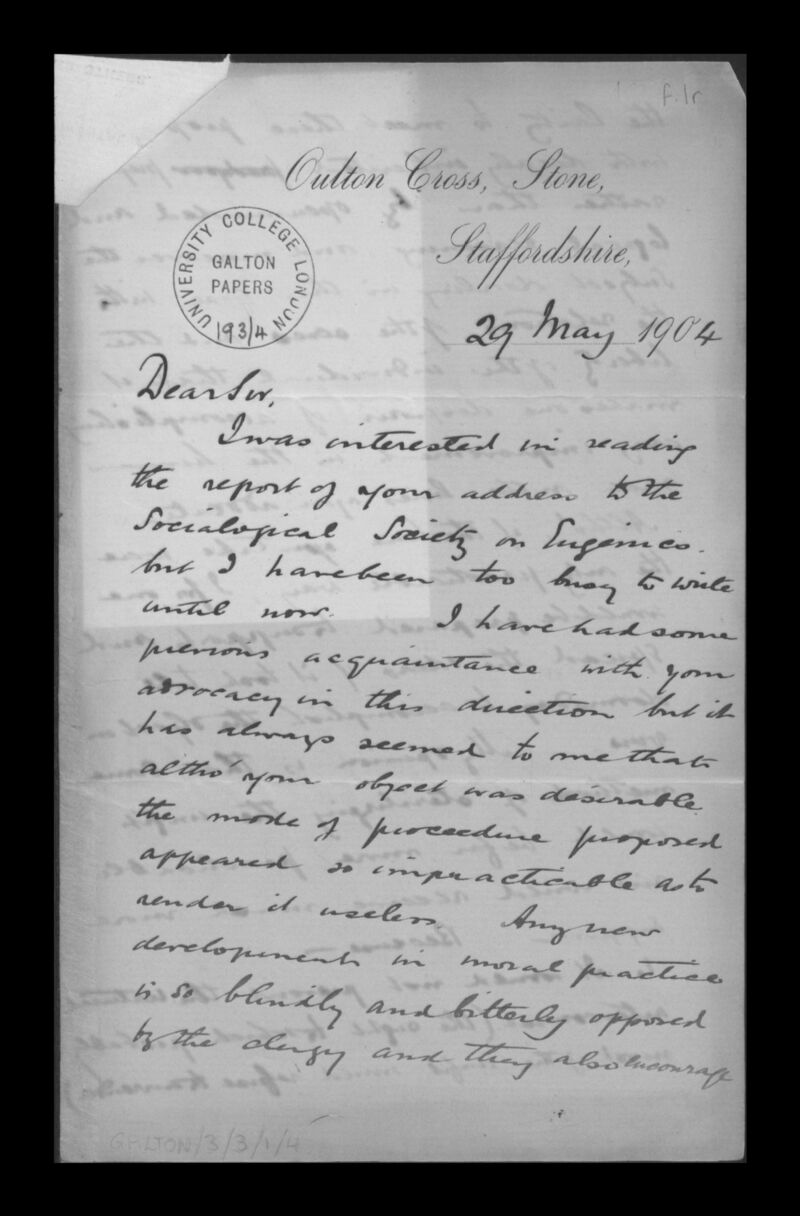 f.1r
Oulton Cross, Stone,
Staffordshire,
UNIVERSITY COLLEGE LONDON
GALTON
PAPERS
193/4
29 May 1904
Dear Sir,
I was interested in reading
the report of your address to the
Sociological Society on Eugenics.
but I have been too busy to write
until now. I have had some
previous acquaintance with your
advocacy in this direction but it
has always seemed to me that
altho' your object was desirable
the mode of proceedure proposed
appeared so impracticable as to
render it useless. Any new
development in moral practice
is so blindly and bitterly opposed
by the clergy and they also encourage
GALTON/3/3/1/4